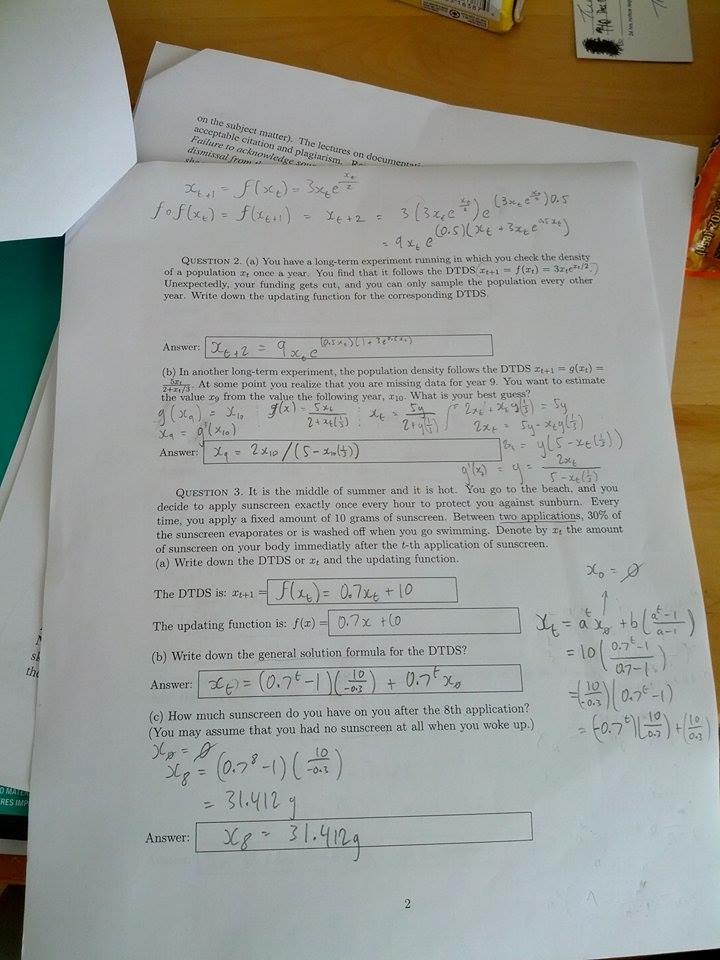 on the subject matter). The lectures on documentati
acceptable citation and plagiarism.
Failure to acknowledge
dismissal from
x_{t+1} = f(x_t) = 3x_t e^{x_t/2}
f∘f(x_t) = f(x_{t+1}) = x_{t+2} = 3(3x_t e^{x_t/2}) e^{(3x_t e^{x_t/2})0.5}
= 9x_t e^{(0.5)(x_t + 3x_t e^{0.5x_t})}
QUESTION 2. (a) You have a long-term experiment running in which you check the density
of a population x_t once a year. You find that it follows the DTDS x_{t+1} = f(x_t) = 3x_t e^{x_t/2}.
Unexpectedly, your funding gets cut, and you can only sample the population every other
year. Write down the updating function for the corresponding DTDS.
Answer: x_{t+2} = 9x_t e^{(0.5x_t)(1+3e^{0.5x_t})}
(b) In another long-term experiment, the population density follows the DTDS x_{t+1} = g(x_t) =
5x_t/(2+x_t/3). At some point you realize that you are missing data for year 9. You want to estimate
the value x_9 from the value the following year, x_{10}. What is your best guess?
g(x_9) = x_{10} g(x) = 5x_t/(2+x_t(1/3)) x_t = 5y/(2+y(1/3)) 2x_t + x_t y(1/3) = 5y
x_9 = g^{-1}(x_{10}) 2x_t = 5y - x_t y(1/3)
= y(5 - x_t(1/3))
Answer: x_9 = 2x_{10}/(5 - x_{10}(1/3))
= y = 2x_t/(5 - x_t(1/3))
QUESTION 3. It is the middle of summer and it is hot. You go to the beach, and you
decide to apply sunscreen exactly once every hour to protect you against sunburn. Every
time, you apply a fixed amount of 10 grams of sunscreen. Between two applications, 30% of
the sunscreen evaporates or is washed off when you go swimming. Denote by x_t the amount
of sunscreen on your body immediatly after the t-th application of sunscreen.
(a) Write down the DTDS or x_t and the updating function.
The DTDS is: x_{t+1} = f(x_t) = 0.7x_t + 10
The updating function is: f(x) = 0.7x + 10
x_0 = 0
x_t = a^t x_0 + b((a^t - 1)/(a - 1))
= 10((0.7^t - 1)/(0.7 - 1))
= (10/-0.3)(0.7^t - 1)
= (-0.7^t)(10/0.3) + (10/0.3)
(b) Write down the general solution formula for the DTDS?
Answer: x_t = (0.7^t - 1)(10/-0.3) + 0.7^t x_0
(c) How much sunscreen do you have on you after the 8th application?
(You may assume that you had no sunscreen at all when you woke up.)
x_0 = 0
x_8 = (0.7^8 - 1)(10/-0.3)
= 31.412 g
Answer: x_8 = 31.412g
2